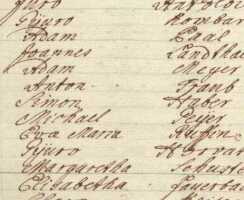 Juro
Gyuro Kombar
Adam Paal
Joannes Landtha
Adam Meyer
Anton Traub
Simon Haber
Michael Peyer
Eva Maria Ruffin
Gyuro Horvat
Margaretha Schuste
Elisabetha Feuerba